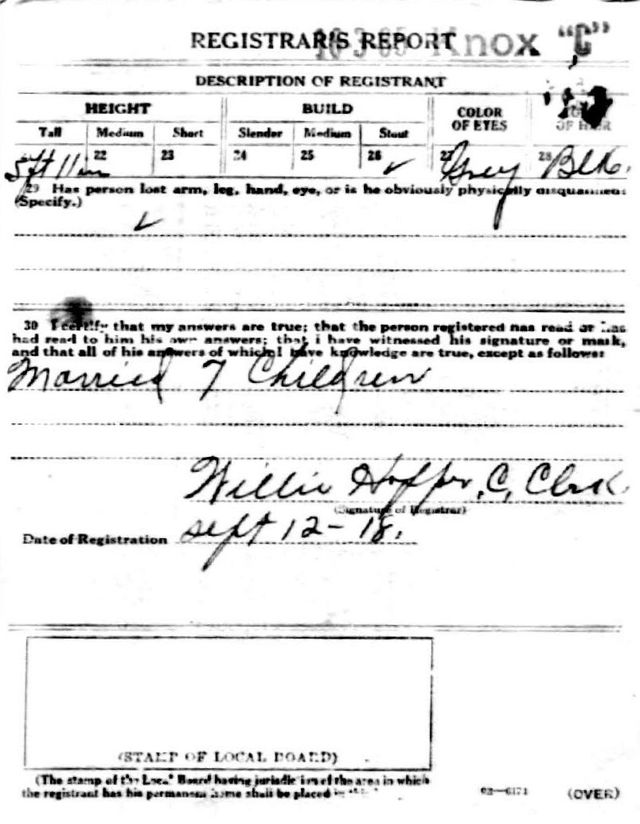 REGISTRAR'S REPORT Knox "C"
DESCRIPTION OF REGISTRANT
HEIGHT BUILD COLOR OF EYES OF HAIR
Tall Medium Short Slender Medium Stout
5ft 11in 22 23 24 25 26 ✓ 27 Grey 28 Blk.
29 Has person lost arm, leg, hand, eye, or is he obviously physically disqualified?
(Specify.)
✓
30 I certify that my answers are true; that the person registered has read or has
had read to him his own answers; that I have witnessed his signature or mark,
and that all of his answers of which I have knowledge are true, except as follows:
Married 7 Children
Willie C. Clerk
(Signature of Registrar)
Date of Registration Sept 12-18.
(STAMP OF LOCAL BOARD)
(The stamp of the Local Board having jurisdiction of the area in which
the registrant has his permanent home shall be placed in this
(OVER)